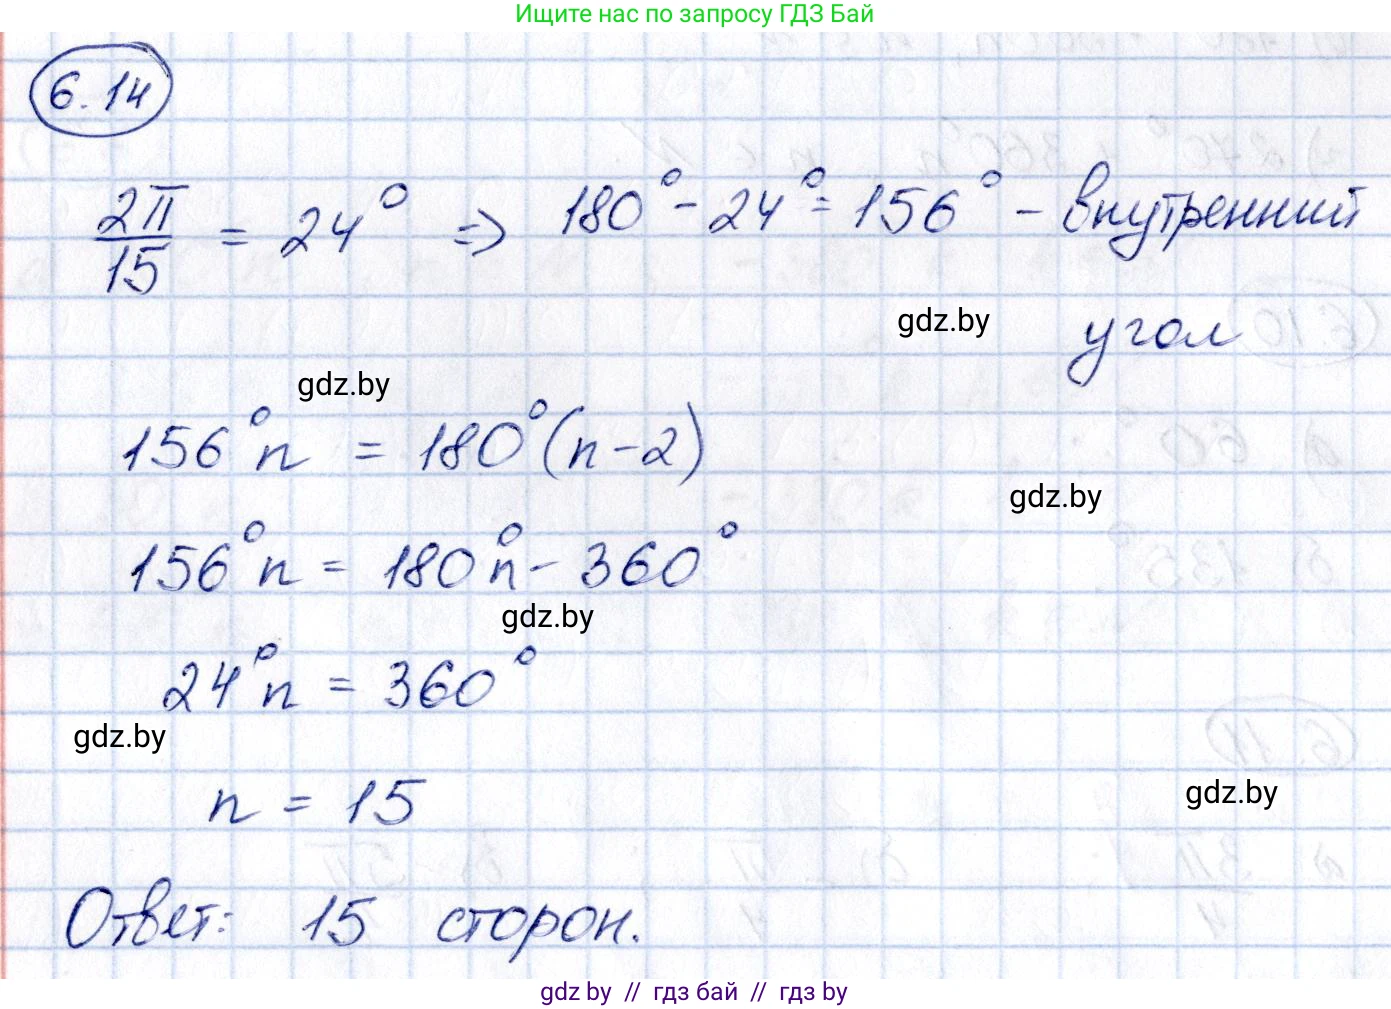 Ищите нас по запросу ГДЗ Бай
6.14
2π/15 = 24° => 180° - 24° = 156° - внутренний
gdz.by
угол
gdz.by
156°n = 180°(n-2)
gdz.by
156°n = 180°n - 360°
gdz.by
24°n = 360°
gdz.by
n = 15
gdz.by
Ответ: 15 сторон.
gdz by // гдз бай // гдз by